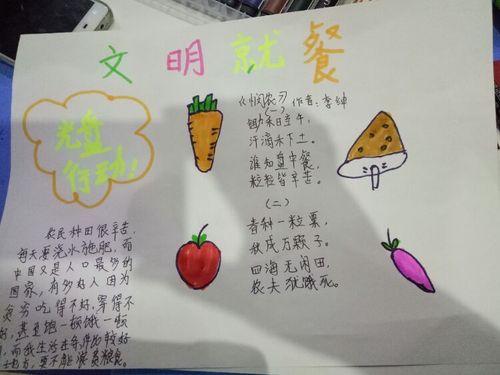 文明就餐
光盘
行动！
《悯农》 作者：李钟
（一）
锄禾日当午，
汗滴禾下土。
谁知盘中餐，
粒粒皆辛苦。
（二）
春种一粒粟，
秋成万颗子。
四海无闲田，
农夫犹饿死。
农民种田很辛苦，
每天要浇水施肥，而
中国又是人口最多的
国家，有多少人因为
贫穷吃得不好，穿得不
好，甚至饱一顿饿一顿
而我生活在条件比较好
地方，更不能浪费粮食。